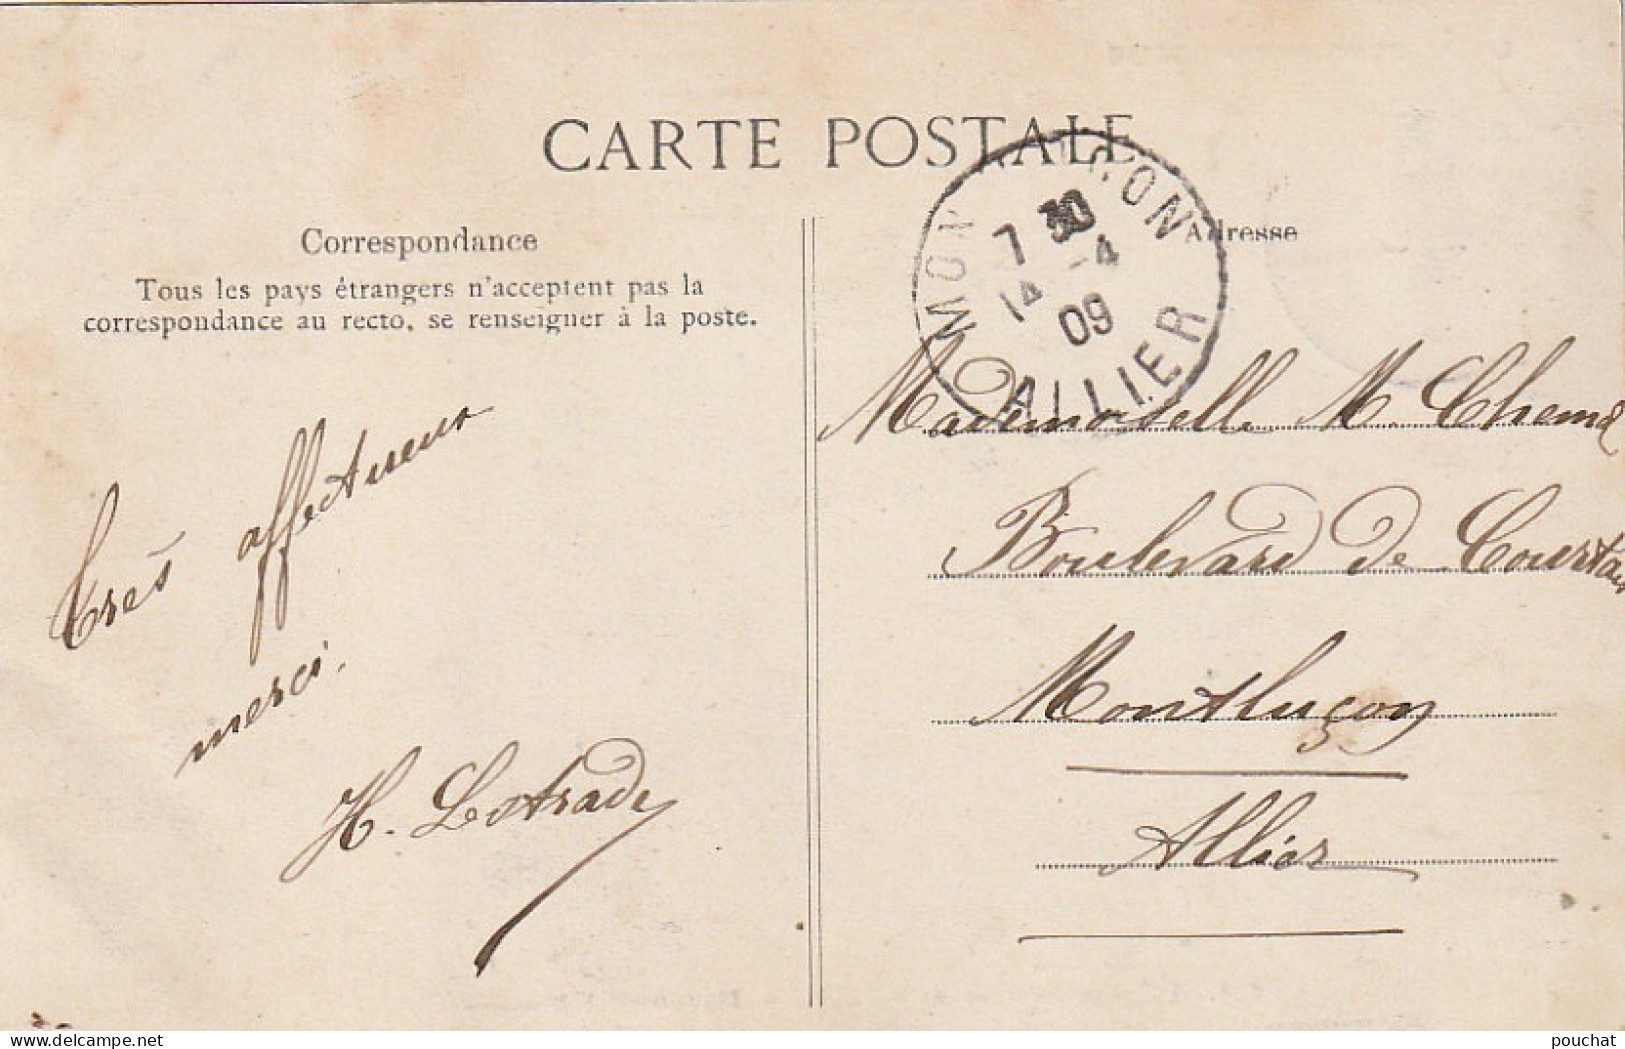 CARTE POSTALE
Correspondance
Tous les pays étrangers n'acceptent pas la
correspondance au recto, se renseigner à la poste.
Très affectueux
merci.
H.
MON ON
7 30
14 -4
09
ALLIER
Adresse
Mademoiselle M.
Boulevard de Courtais
Montluçon
Allier
delcampe.net
pouchat